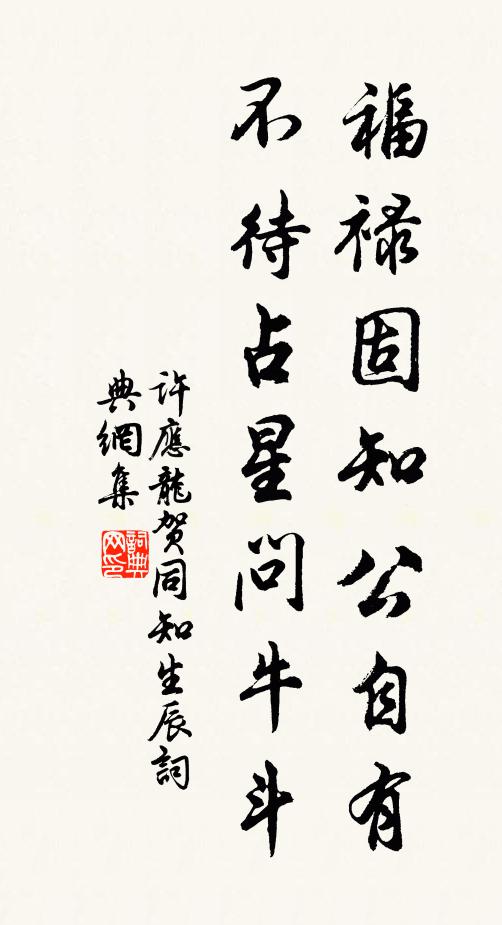 福禄固知公自有
不待占星問牛斗
許應龍贺同知生辰詞
典網集
詞典网印